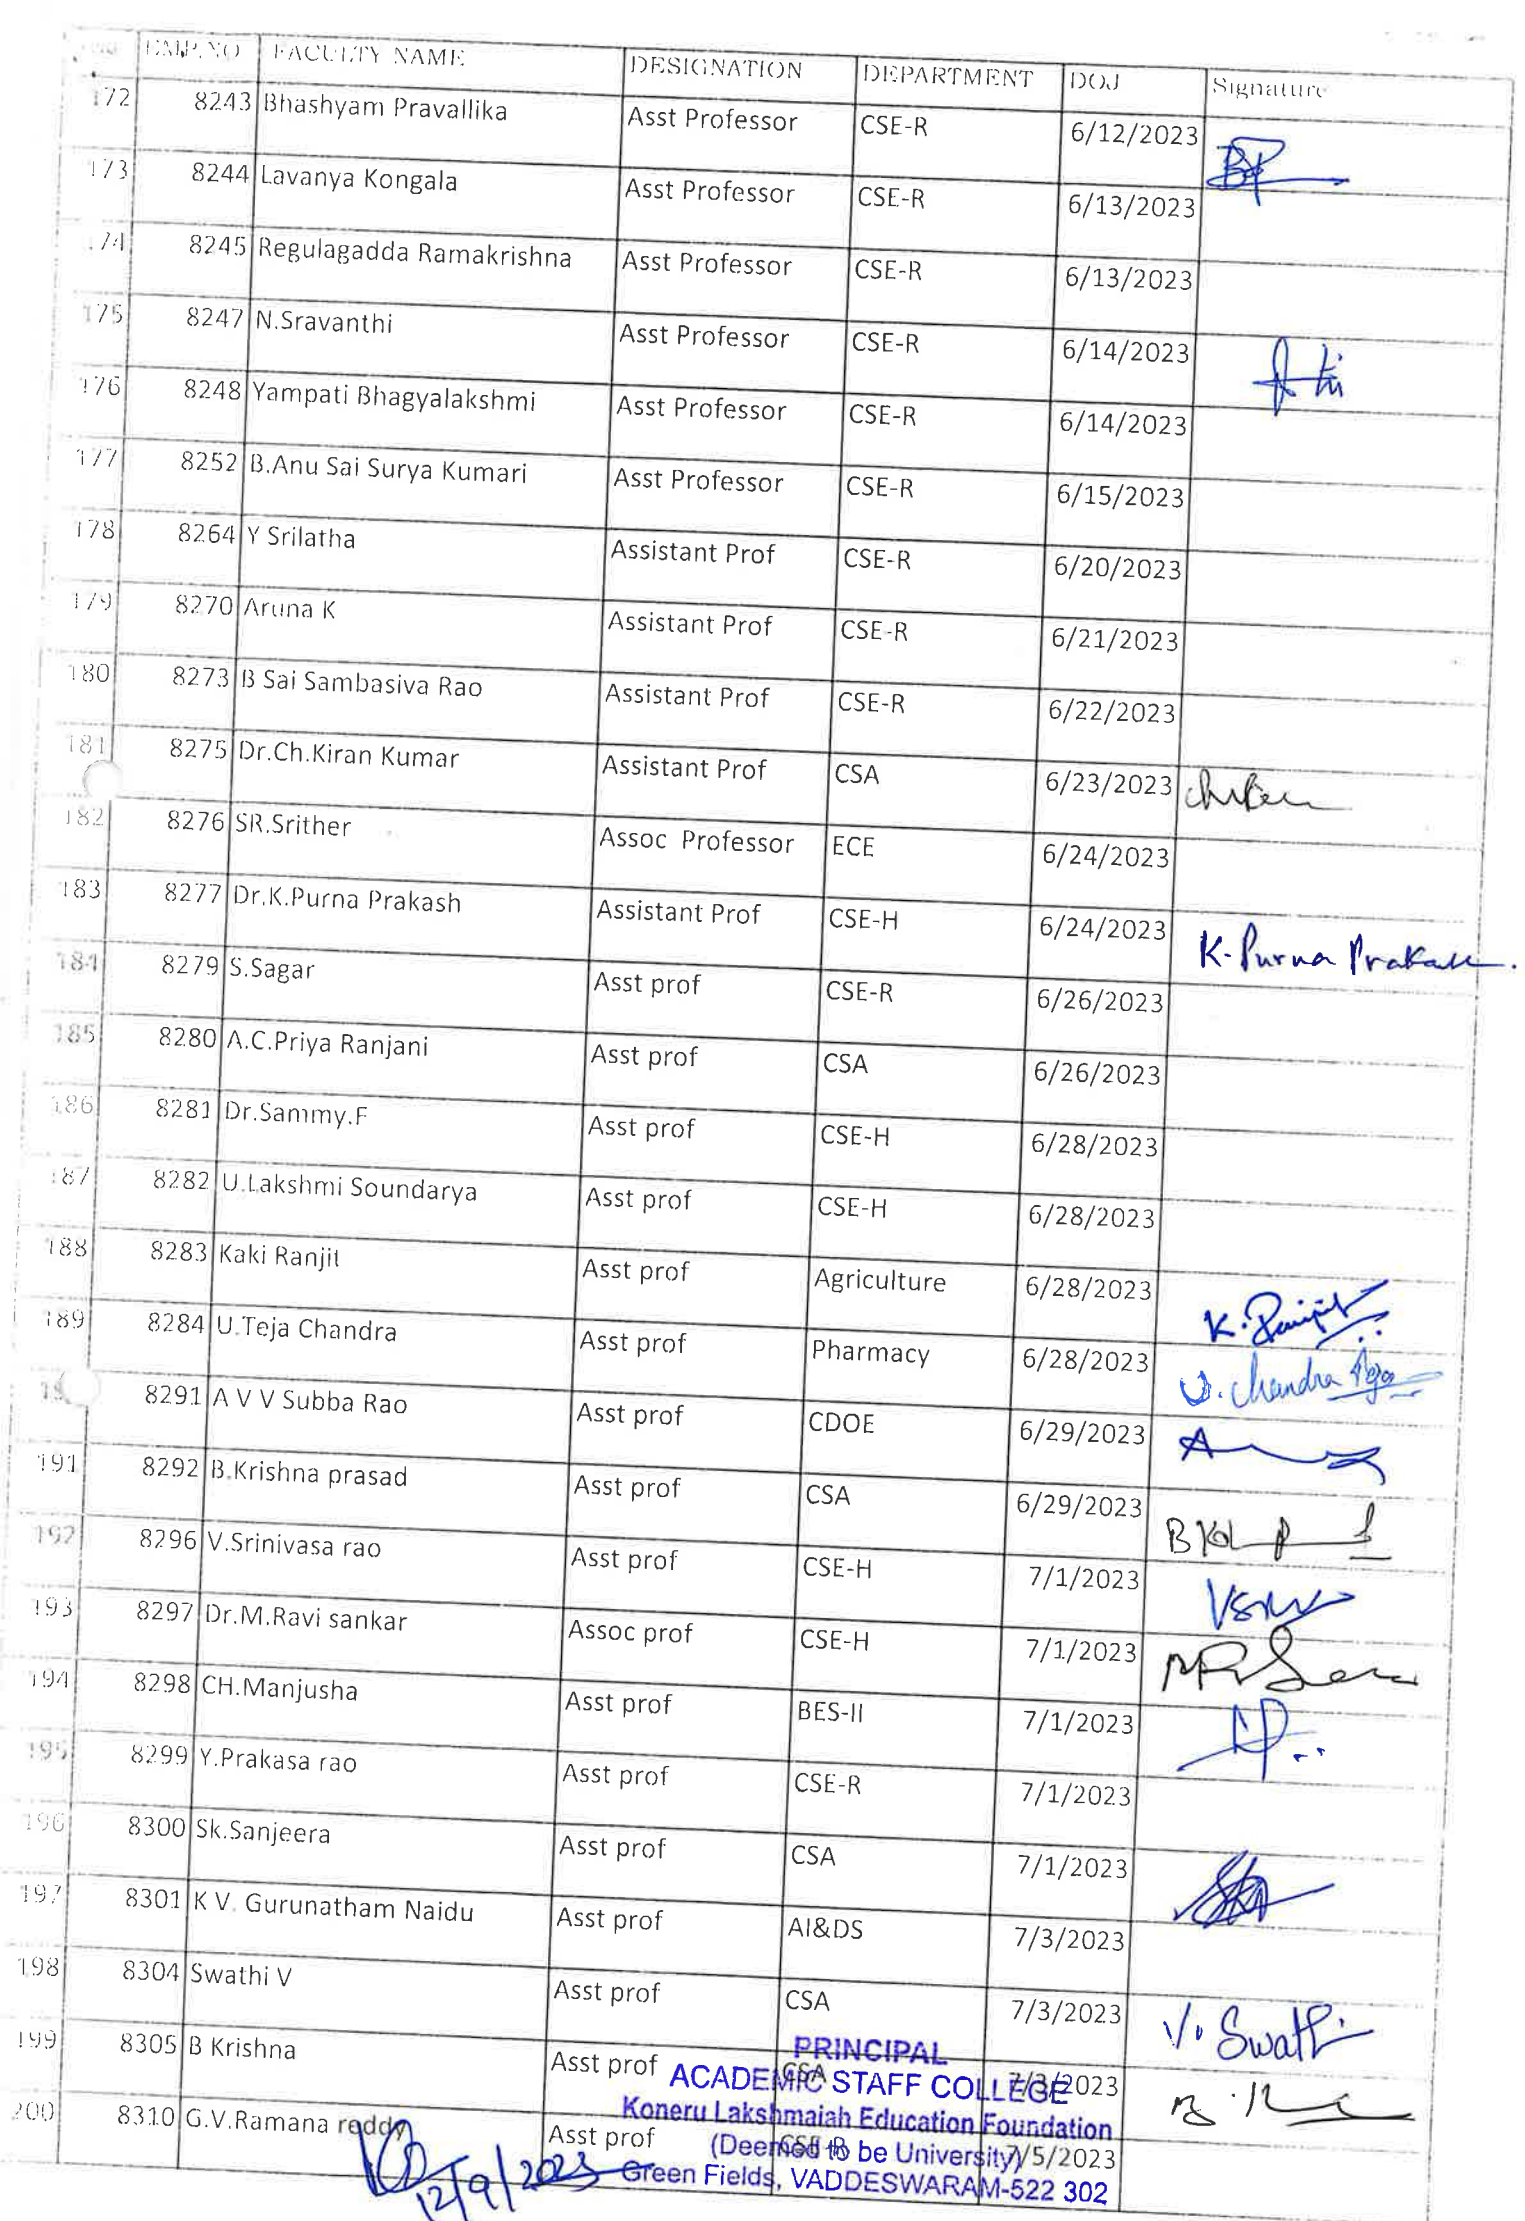 EMP.NO FACULTY NAME DESIGNATION DEPARTMENT DOJ Signature
172 8243 Bhashyam Pravallika Asst Professor CSE-R 6/12/2023
173 8244 Lavanya Kongala Asst Professor CSE-R 6/13/2023
174 8245 Regulagadda Ramakrishna Asst Professor CSE-R 6/13/2023
175 8247 N.Sravanthi Asst Professor CSE-R 6/14/2023
176 8248 Yampati Bhagyalakshmi Asst Professor CSE-R 6/14/2023
177 8252 B.Anu Sai Surya Kumari Asst Professor CSE-R 6/15/2023
178 8264 Y Srilatha Assistant Prof CSE-R 6/20/2023
179 8270 Aruna K Assistant Prof CSE-R 6/21/2023
180 8273 B Sai Sambasiva Rao Assistant Prof CSE-R 6/22/2023
181 8275 Dr.Ch.Kiran Kumar Assistant Prof CSA 6/23/2023
182 8276 SR.Srither Assoc Professor ECE 6/24/2023
183 8277 Dr.K.Purna Prakash Assistant Prof CSE-H 6/24/2023 K. Purna Prakash.
184 8279 S.Sagar Asst prof CSE-R 6/26/2023
185 8280 A.C.Priya Ranjani Asst prof CSA 6/26/2023
186 8281 Dr.Sammy.F Asst prof CSE-H 6/28/2023
187 8282 U.Lakshmi Soundarya Asst prof CSE-H 6/28/2023
188 8283 Kaki Ranjit Asst prof Agriculture 6/28/2023 K. Ranjit
189 8284 U.Teja Chandra Asst prof Pharmacy 6/28/2023 U. Chandra Teja
8291 A V V Subba Rao Asst prof CDOE 6/29/2023
191 8292 B.Krishna prasad Asst prof CSA 6/29/2023
192 8296 V.Srinivasa rao Asst prof CSE-H 7/1/2023
193 8297 Dr.M.Ravi sankar Assoc prof CSE-H 7/1/2023
194 8298 CH.Manjusha Asst prof BES-II 7/1/2023
195 8299 Y.Prakasa rao Asst prof CSE-R 7/1/2023
196 8300 Sk.Sanjeera Asst prof CSA 7/1/2023
197 8301 K V. Gurunatham Naidu Asst prof AI&DS 7/3/2023
198 8304 Swathi V Asst prof CSA 7/3/2023 V. Swathi
199 8305 B Krishna Asst prof CSA 7/3/2023
200 8310 G.V.Ramana reddy Asst prof 7/5/2023
PRINCIPAL
ACADEMIC STAFF COLLEGE
Koneru Lakshmaiah Education Foundation
(Deemed to be University)
Green Fields, VADDESWARAM-522 302
12/9/2023